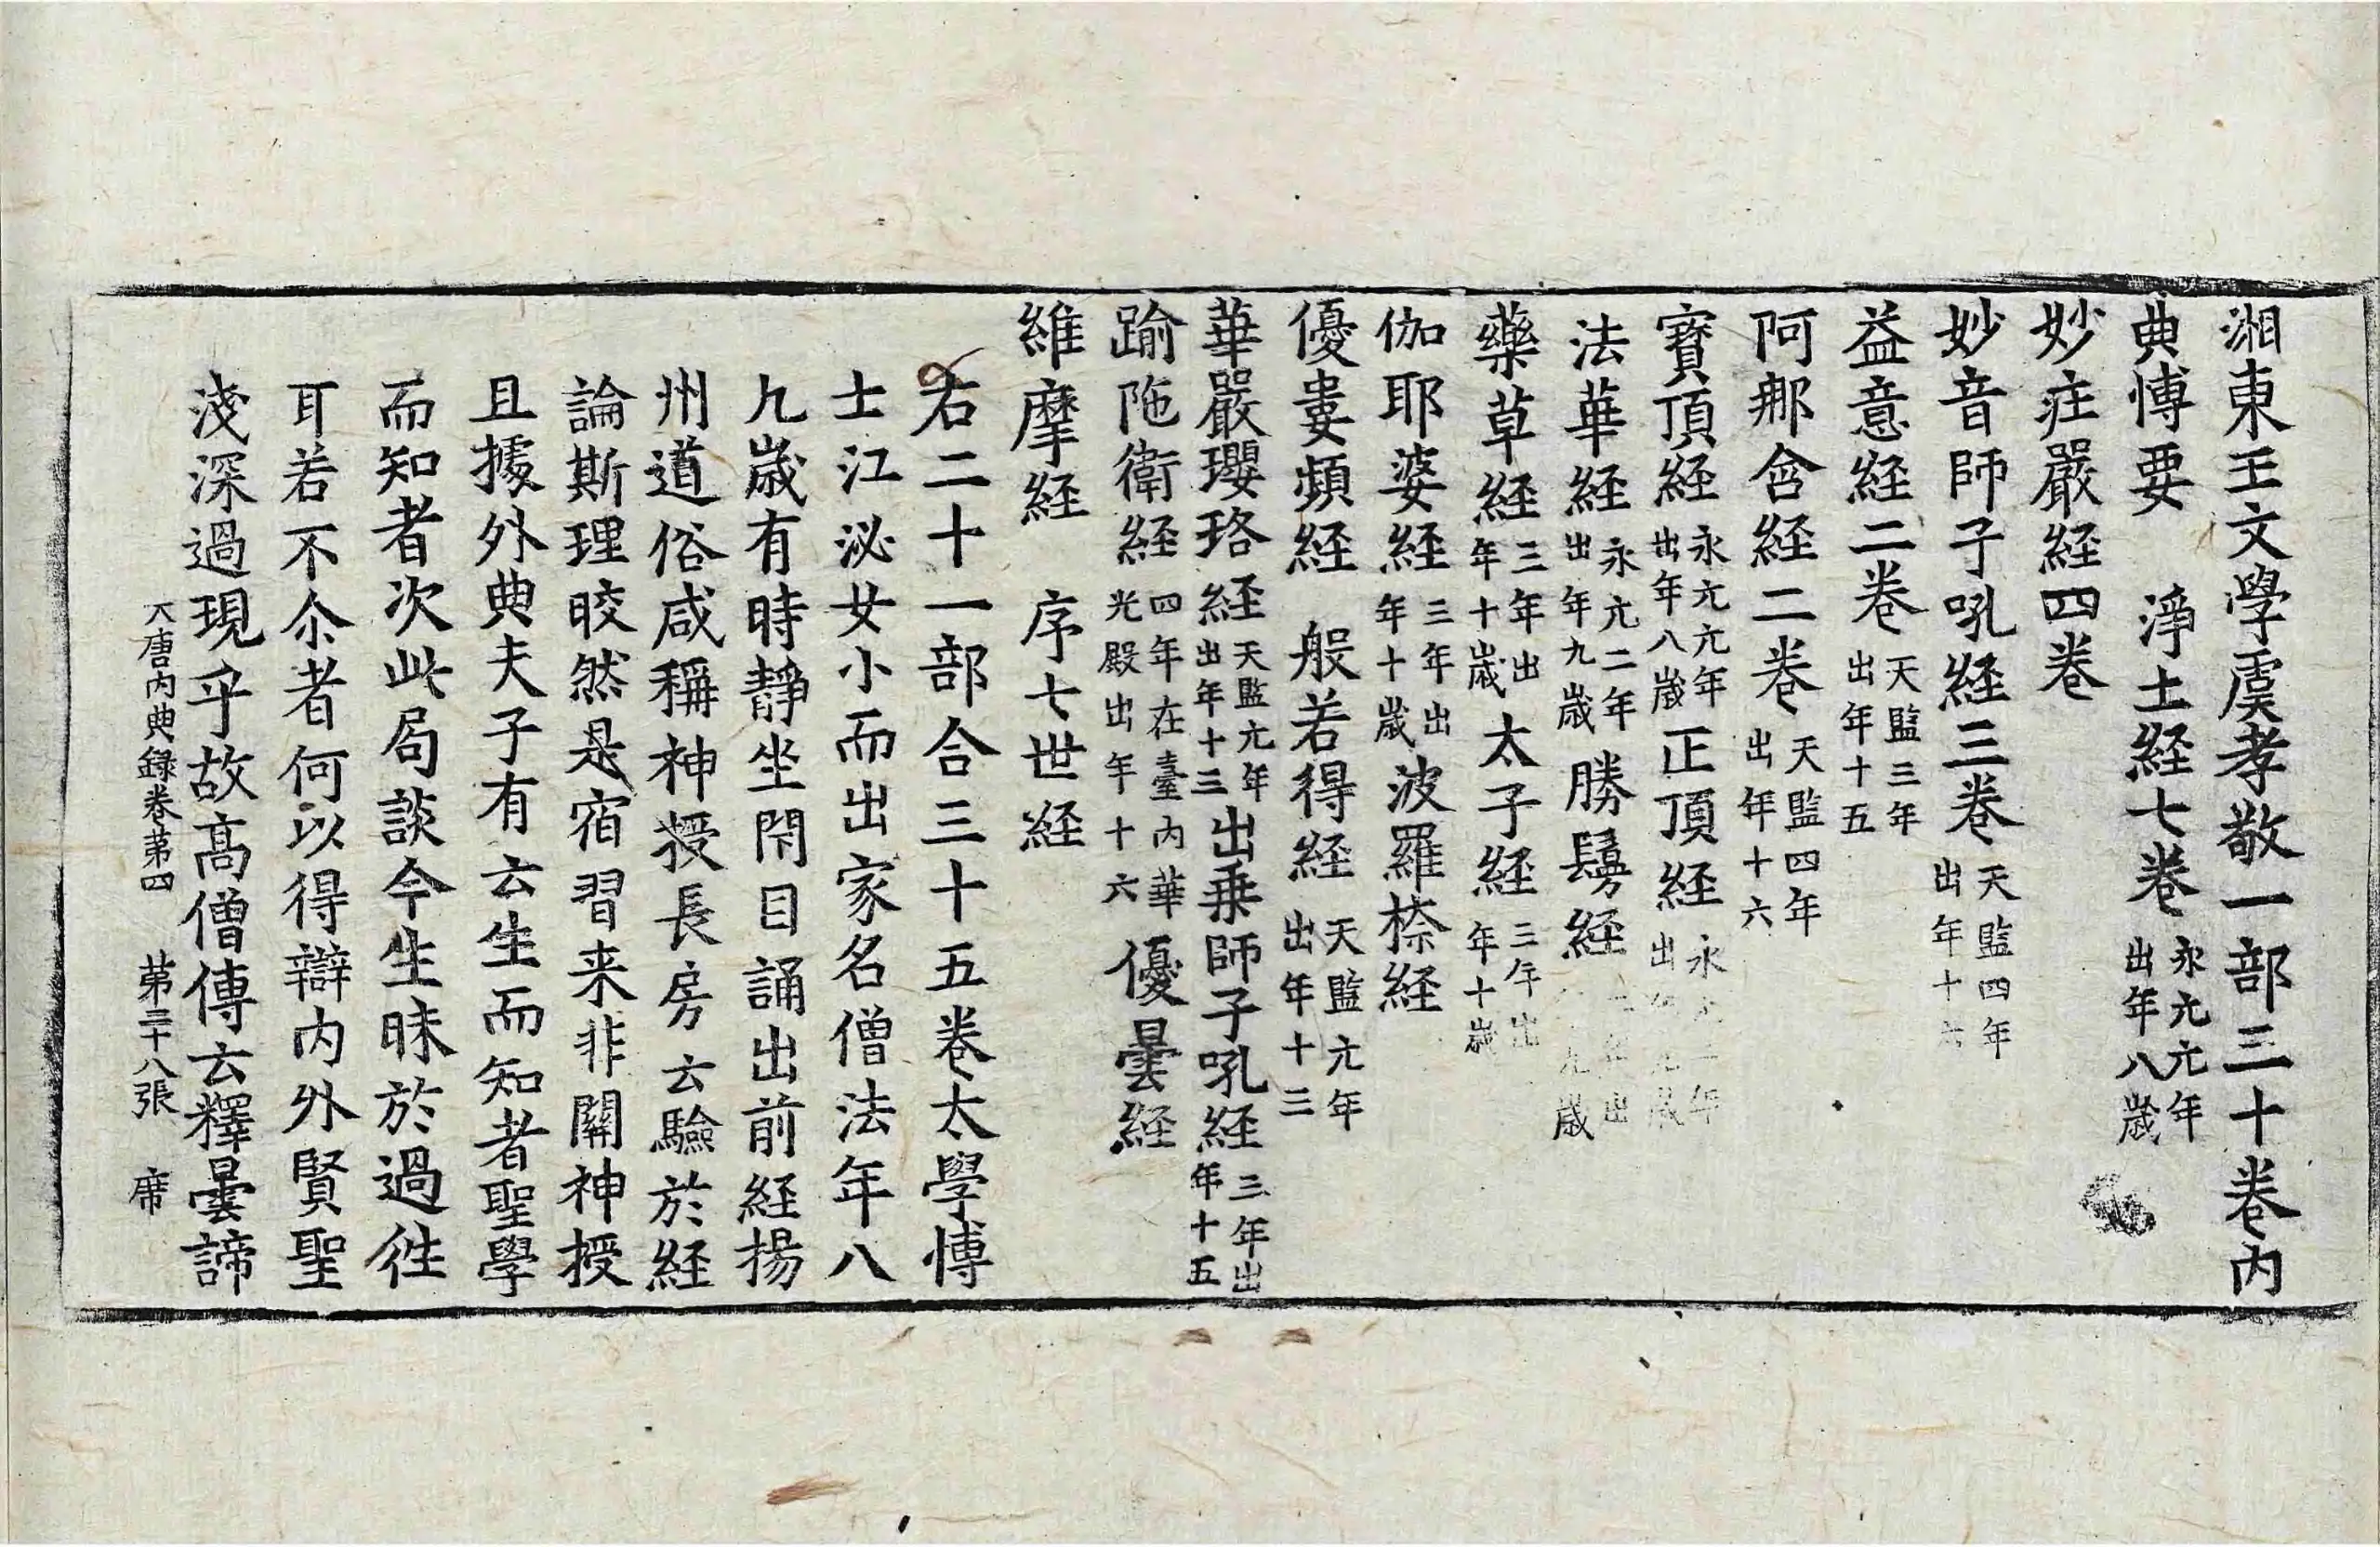 湘東王文學虞孝敬一部三十卷內
典博要　淨土経七卷永亢亢年出年八歳
妙庄嚴経四卷
妙音師子吼経三卷天監四年出年十六
益意経二卷天監三年出年十五
阿那含経二卷天監四年出年十六
寶頂経永亢亢年出年八歳正頂経永
法華経永亢二年出年九歳勝鬘経出九歳
藥草経三年出年十歳太子経三年出年十歳
伽耶婆経三年出年十歳波羅㮈経
優婁頻経　般若得経天監亢年出年十三
華嚴瓔珞経天監亢年出年十三出乗師子吼経三年出年十五
踰陁衛経四年在臺內華光殿出年十六優曇経
維摩経　序七世経
右二十一部合三十五卷太學博
士江泌女小而出家名僧法年八
九歳有時靜坐閇目誦出前経揚
州道俗咸稱神授長房云驗於経
論斯理晈然是宿習来非關神授
且據外典夫子有云生而知者聖學
而知者次此局談今生昧於過徃
耳若不尒者何以得辯內外賢聖
淺深過現乎故髙僧傳云釋曇諦
大唐內典錄卷苐四　苐三十八張　席